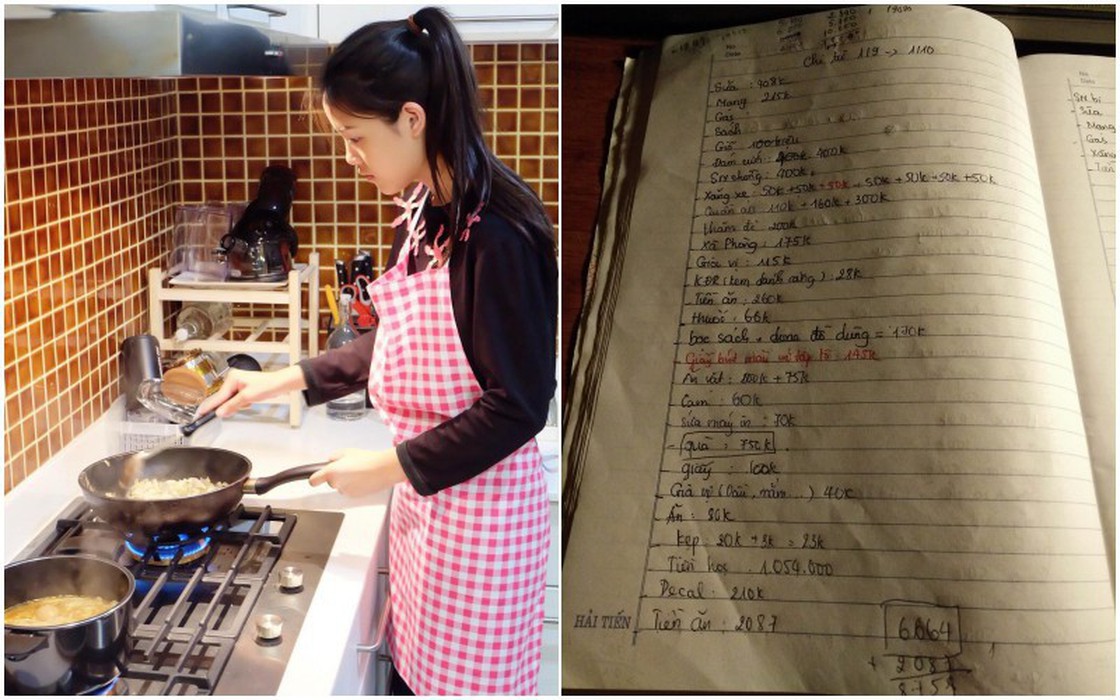 Chi từ 1/9 -> 1/10
Sữa : 908k
Mạng 215k
Gas
Sách
Giỗ 100
Đám cưới : 400k
400k
Xăng xe : 50k + 50k + 50k + 50k + 50k + 50k + 50k
Quần áo 110k + 160k + 300k
thăm đẻ : 200k
Xà Phòng : 175k
Gia vị : 115k
KĐR (kem đánh răng) : 28k
Tiền ăn : 260k
thuốc : 66k
bọc sách + dụng đồ dùng = 170k
145k
Ăn vặt : 200k + 75k
Cam : 60k
sửa máy in : 70k
- quà : 750k
giấy : 100k
Gia vị (Dầu, mắm ...) 40k
Ăn : 80k
kẹp : 20k + 3k = 23k
Tiền học : 1.054.000
Decal : 210k
Tiền ăn : 2087
6664
+ 2087
HẢI TIẾN
Sữa
Mạng
Gas
Xăng